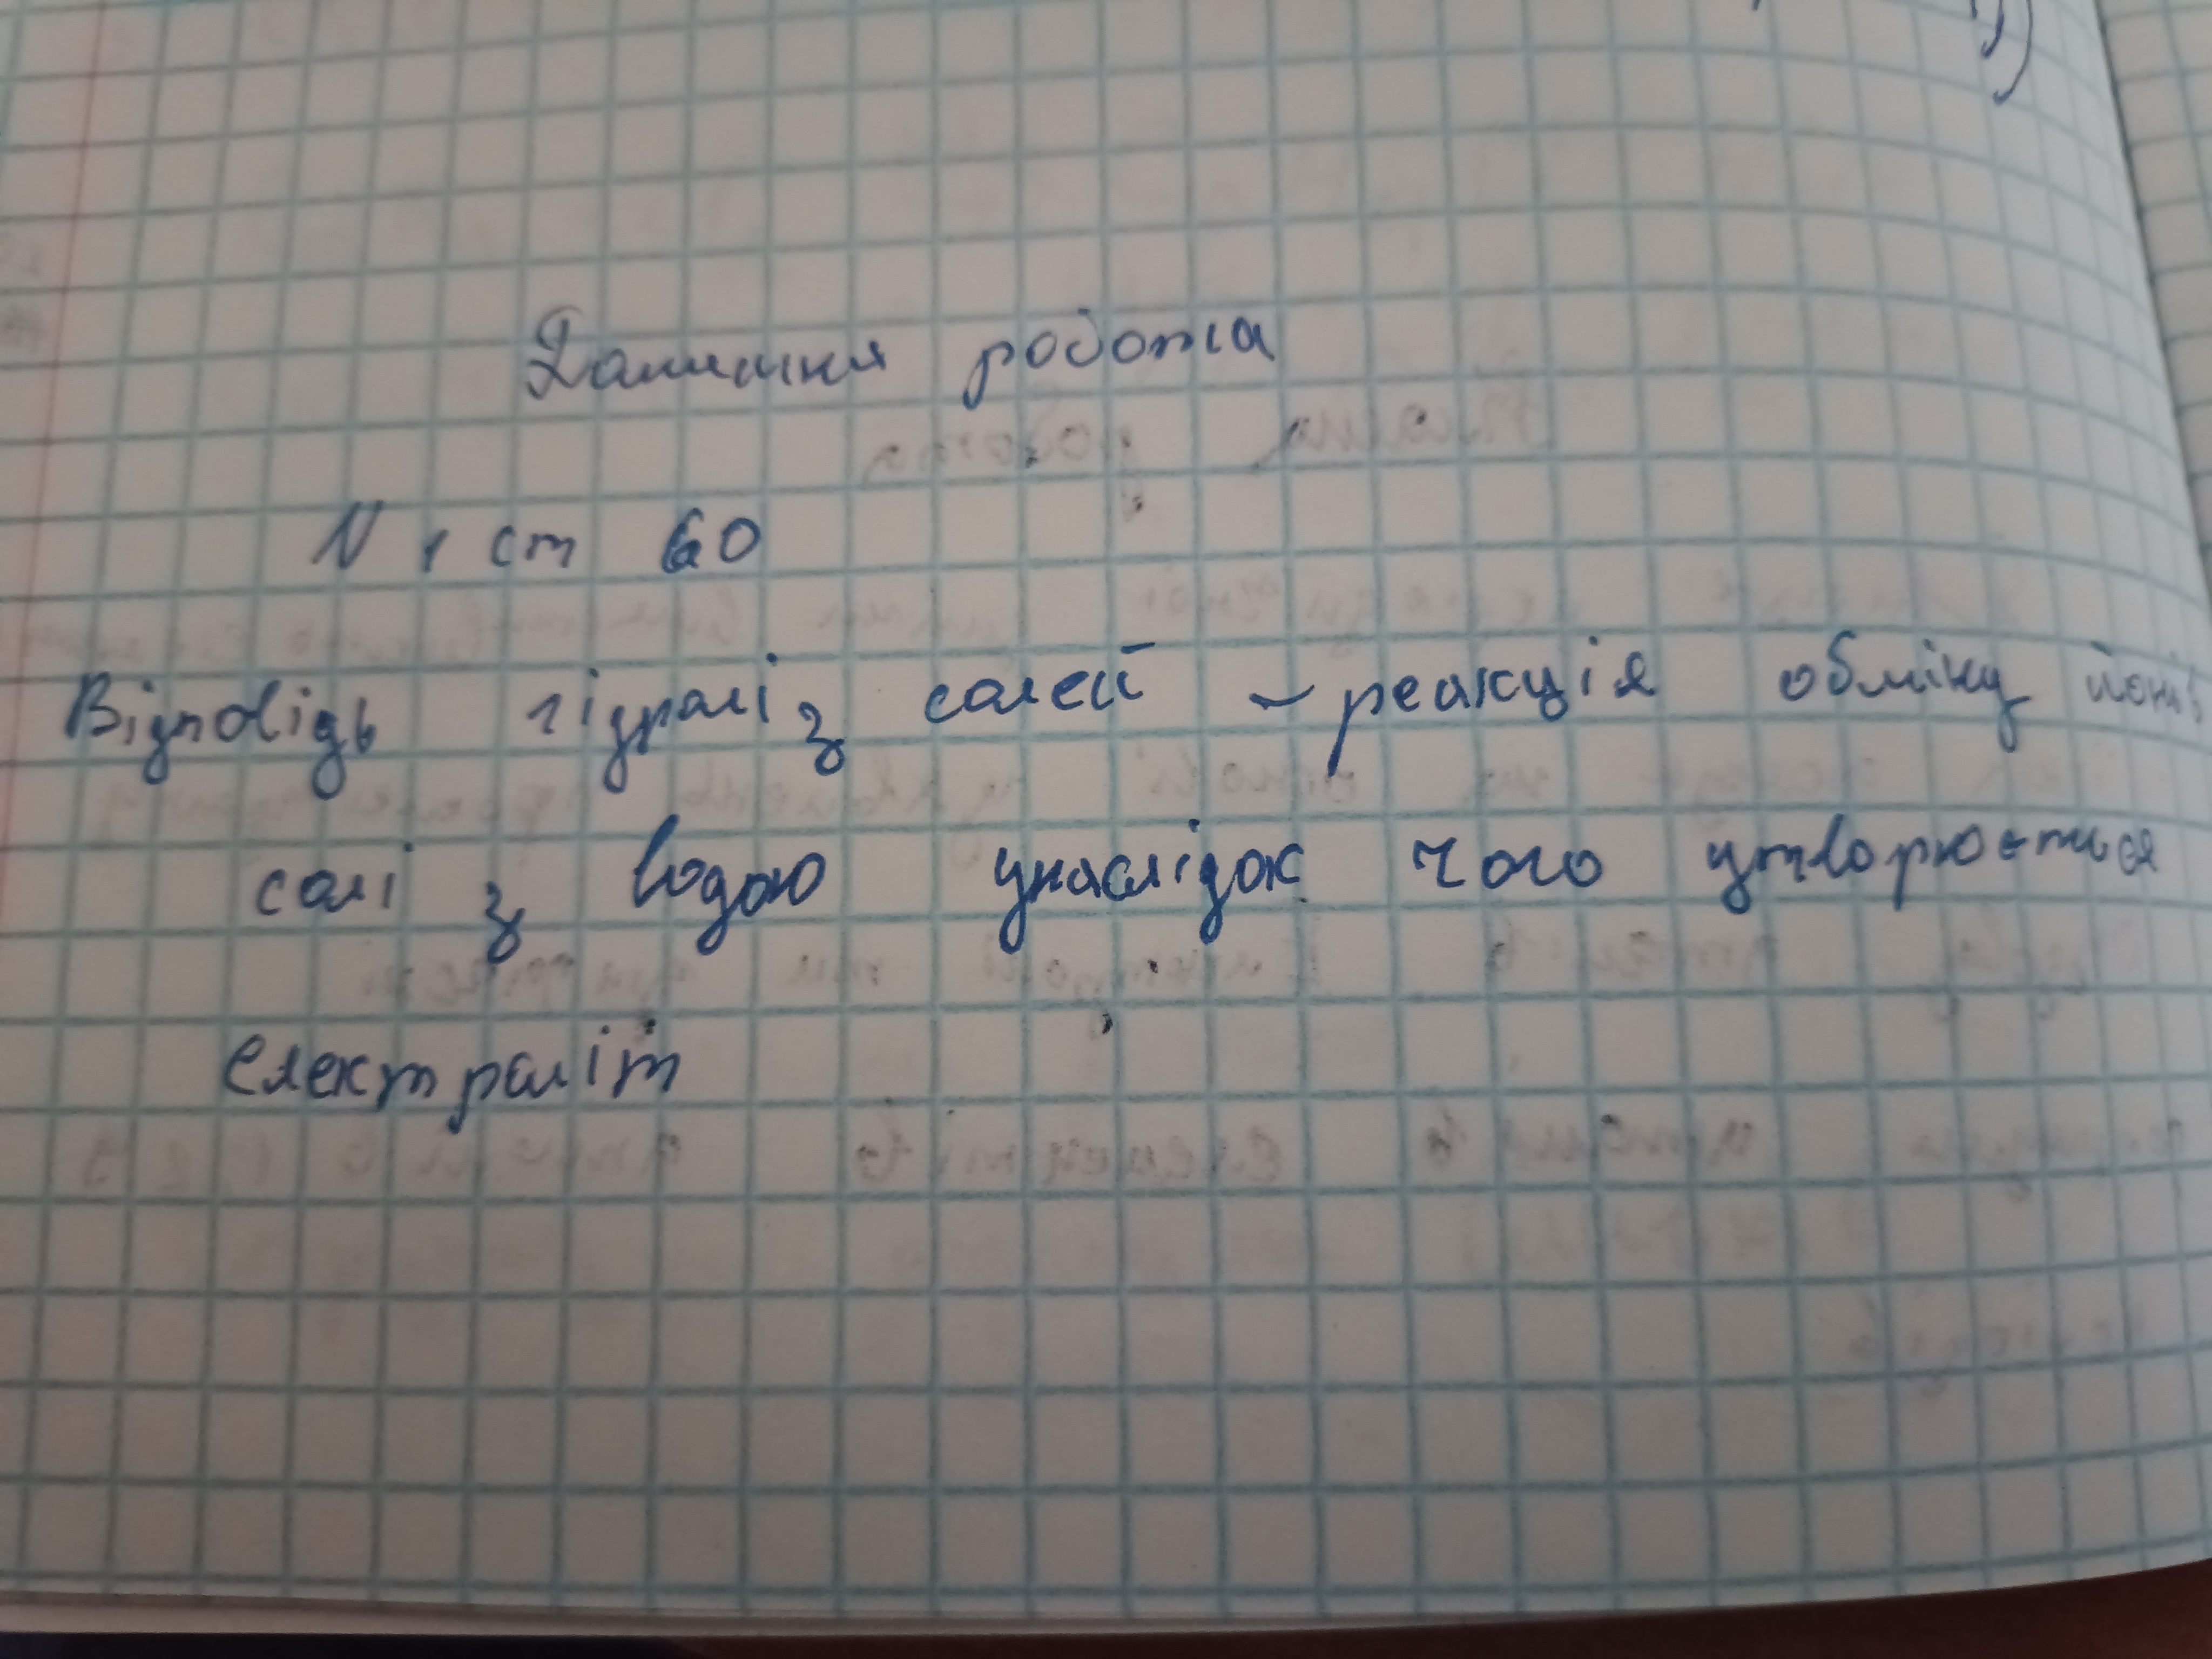 Домашня робота
N 1 ст 60
Відповідь гідроліз солей - реакція обміну йонів
солі з водою унаслідок чого утворюється
електроліт